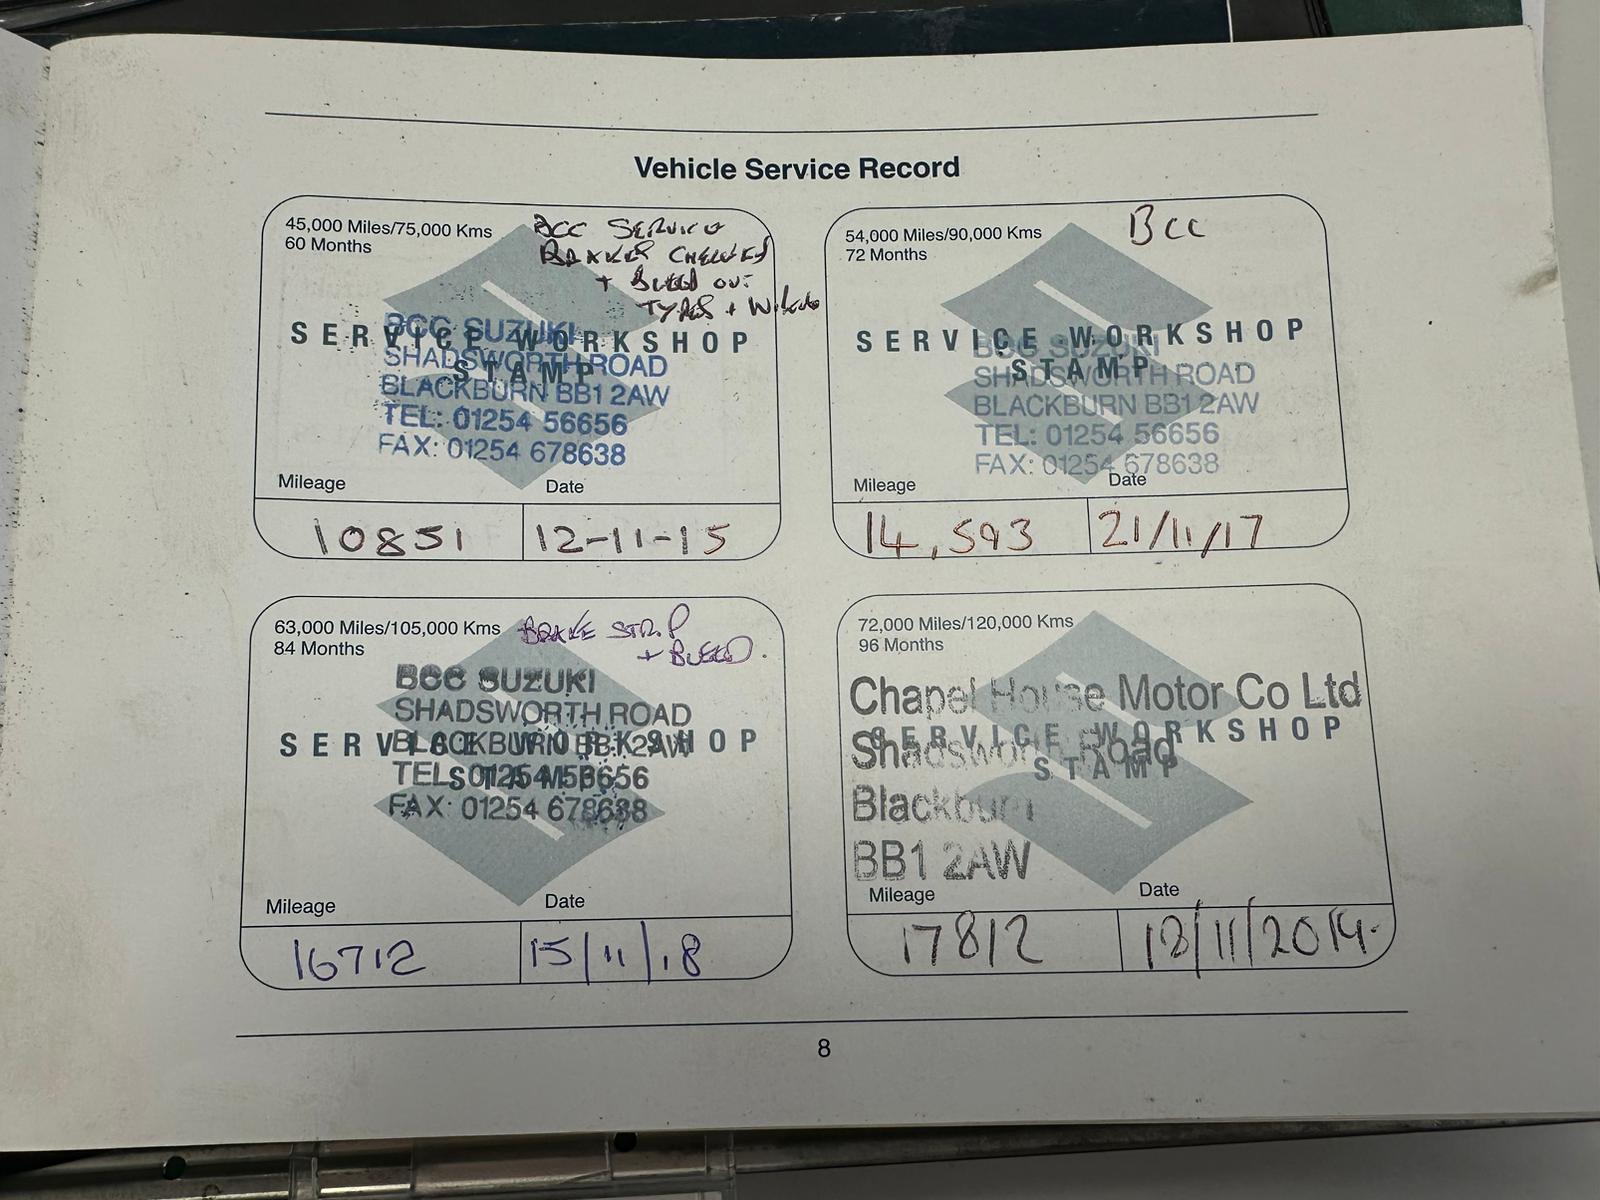 Vehicle Service Record
45,000 Miles/75,000 Kms
60 Months
BCC SERVICE
BRAKES CHECKED
+ BLEED OUT
TYRES +
SERVICE WORKSHOP
STAMP
BCC SUZUKI
SHADSWORTH ROAD
BLACKBURN BB1 2AW
TEL: 01254 56656
FAX: 01254 678638
Mileage
Date
10851
12-11-15
54,000 Miles/90,000 Kms
72 Months
BCC
SERVICE WORKSHOP
STAMP
BCC SUZUKI
SHADSWORTH ROAD
BLACKBURN BB1 2AW
TEL: 01254 56656
FAX: 01254 678638
Mileage
Date
14,593
21/11/17
63,000 Miles/105,000 Kms
84 Months
BRAKE STRIP
+ BLEED.
BCC SUZUKI
SHADSWORTH ROAD
SERVICE WORKSHOP
BLACKBURN BB1 2AW
STAMP
TEL: 01254 56656
FAX: 01254 678638
Mileage
Date
16712
15/11/18
72,000 Miles/120,000 Kms
96 Months
Chapel House Motor Co Ltd
SERVICE WORKSHOP
Shadsworth Road
STAMP
Blackburn
BB1 2AW
Mileage
Date
17812
8